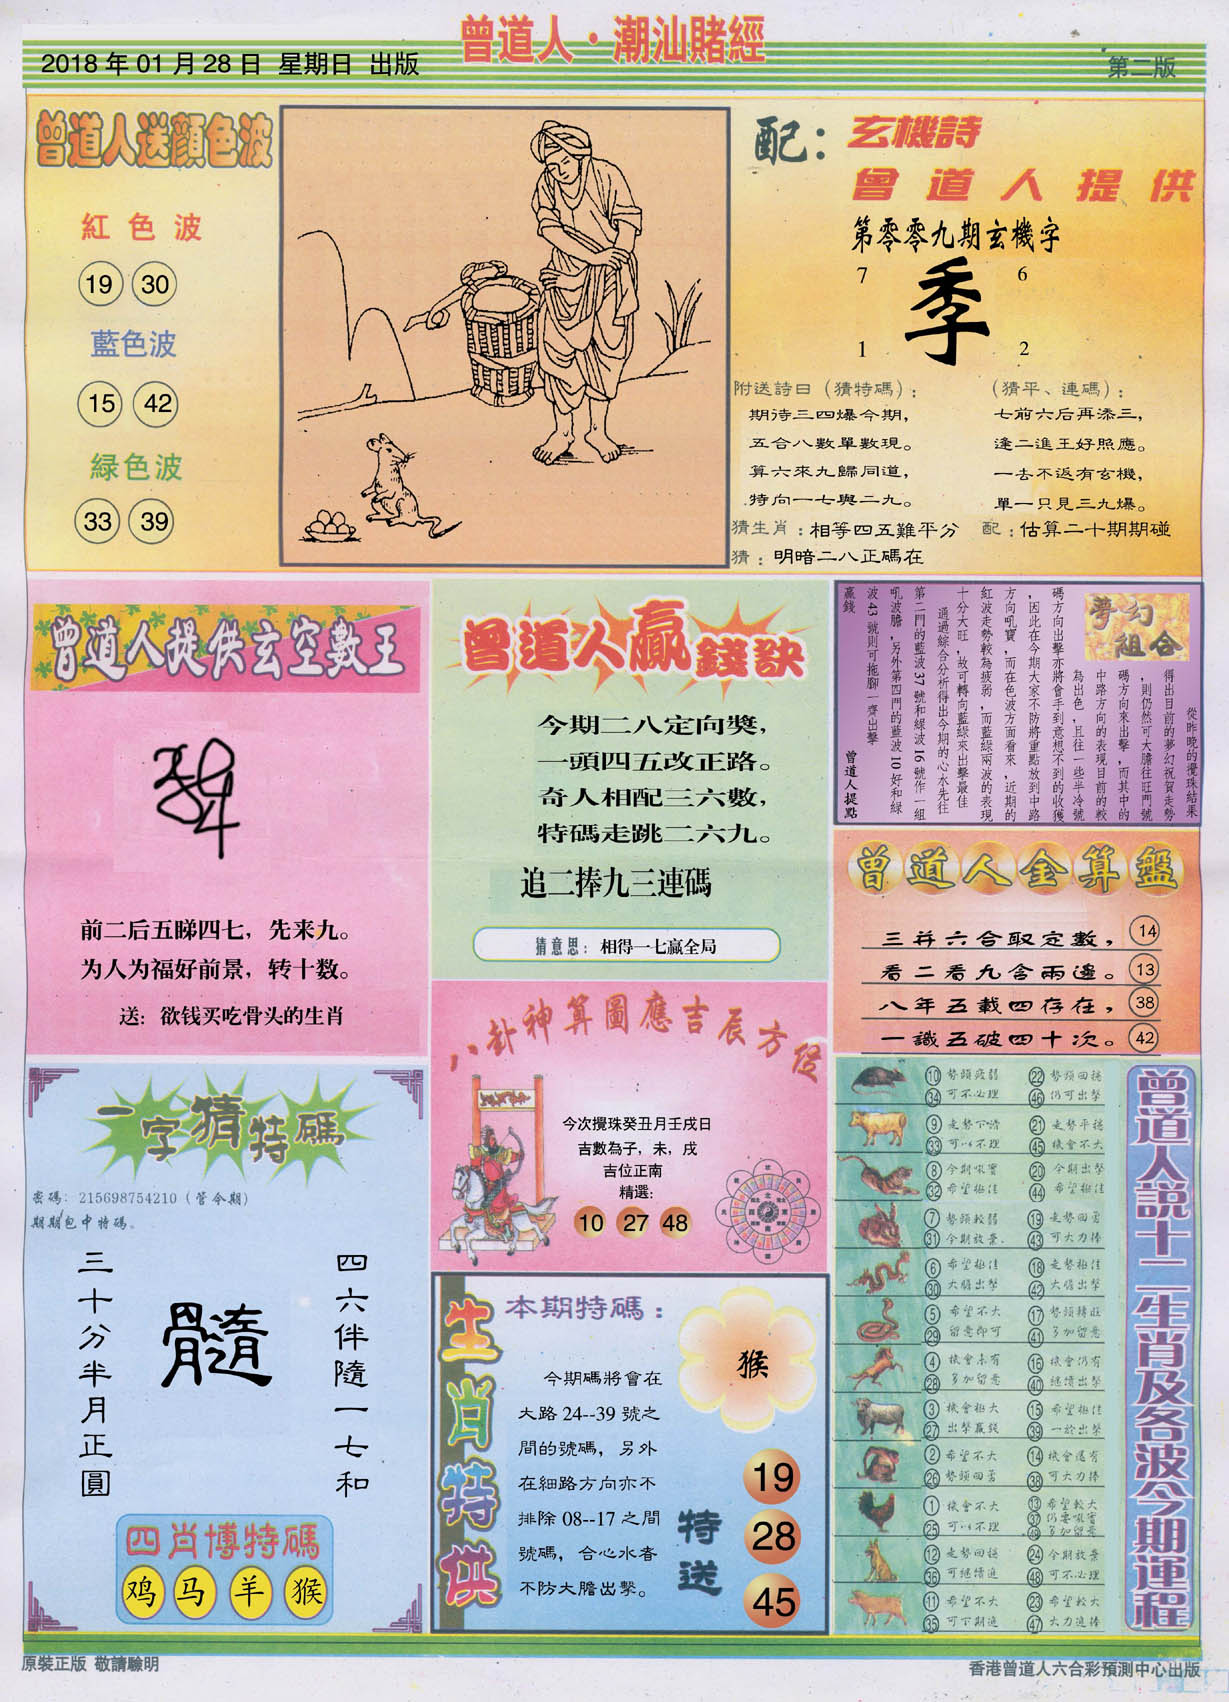 曾道人·潮汕賭經
2018年01月28日 星期日 出版
第二版
曾道人送顏色波
紅色波
19 30
藍色波
15 42
緑色波
33 39
配：
玄機詩
曾道人提供
第零零九期玄機字
7 6
季
1 2
附送詩曰（猜特碼）：
期待三四爆今期，
五合八數單數現。
算六來九歸同道，
特向一七與二九。
（猜平、連碼）：
七前六后再添三，
逢二進王好照應。
一去不返有玄機，
單一只見三九爆。
猜生肖：相等四五難平分
配：估算二十期期碰
猜：明暗二八正碼在
曾道人提供玄空數王
前二后五睇四七，先来九。
为人为福好前景，转十数。
送：欲钱买吃骨头的生肖
曾道人贏錢訣
今期二八定向獎，
一頭四五改正路。
奇人相配三六數，
特碼走跳二六九。
追二捧九三連碼
猜意思：相得一七贏全局
夢幻
組合
從昨晚的攪珠結果
得出目前的夢幻祝賀走勢
，則仍然可大膽往旺門號
碼方向來出擊，而其中的
中路方向的表現目前的較
為出色，且往一些半冷號
碼方向出擊亦將會手到意想不到的收獲
，因此在今期大家不防將重點放到中路
方向吼寶，而在色波方面看來，近期的
紅波走勢較為疲弱，而藍綠兩波的表現
十分大旺，故可轉向藍綠來出擊最佳
通過綜合分析得出今期的心水先往
第二門的藍波37號和綠波16號作一組
吼波膽，另外第四門的藍波10好和綠
波43號則可拖腳一齊出擊
贏錢
曾道人提點
曾道人金算盤
三并六合取定數， 14
看二看九含兩邊。 13
八年五載四存在， 38
一識五破四十次。 42
八卦神算圖應吉辰方位
今次攪珠癸丑月壬戌日
吉數為子，未，戌
吉位正南
精選：
10 27 48
一字猜特碼
密碼：215698754210（管令期）
期期包中特碼。
四六伴隨一七和
髓
三十分半月正圓
四肖博特碼
鸡 马 羊 猴
生肖特供
本期特碼：
猴
今期碼將會在
大路24--39號之
間的號碼，另外
在細路方向亦不
排除08--17之間
號碼，合心水者
不防大膽出擊。
特送
19
28
45
曾道人説十二生肖及各波今期運程
10 勢頭疲弱 22 勢頭回穩
34 可不必理 46 仍可出擊
9 走勢下滑 21 走勢平穩
33 可以不理 45 機會不大
8 今期吼實 20 今期出擊
32 希望極佳 44 希望極佳
7 勢頭較弱 19 走勢回勇
31 今期放棄 43 可大力捧
6 希望極佳 18 走勢極佳
30 大膽出擊 42 大膽出擊
5 希望不大 17 勢頭轉旺
29 留意即可 41 多加留意
4 機會未有 16 機會仍有
28 多加留意 40 繼續出擊
3 機會極大 15 希望極佳
27 出擊贏錢 39 一於出擊
2 希望不大 14 機會還有
26 勢頭回勇 38 可大力捧
1 機會不大 13 希望較大
25 可以不理 37 仍要吼實
49 多加留意
12 走勢回穩 24 今期放棄
36 可繼續追 48 可不必理
11 希望不大 23 希望較大
35 可下期追 47 大力追捧
原裝正版 敬請驗明
香港曾道人六合彩預測中心出版